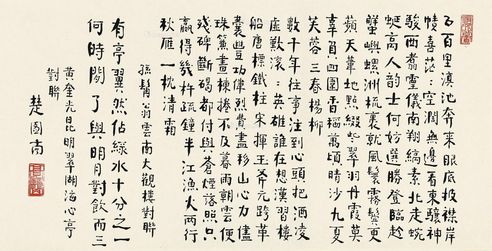 五百里滇池奔來眼底披襟岸
幘喜茫〻空闊無邊看東驤神
駿西翥靈儀南翔縞素北走蜿
蜒高人韵士何妨選勝登臨趁
蟹嶼螺洲梳裹就風鬟霧鬢更
蘋天葦地點綴些翠羽丹霞莫
辜負四圍香稻萬頃晴沙九夏
芙蓉三春楊柳
數千年往事注到心頭把酒凌
虛歎滾〻英雄誰在想漢習樓
船唐標鐵柱宋揮玉斧元跨革
囊豐功偉烈費盡移山心力儘
珠簾畫棟捲不及暮雨朝雲便
殘碑斷碣都付與蒼煙落照只
贏得幾杵疏鐘半江漁火兩行
秋雁一枕清霜
孫髯翁雲南大觀樓對聯
有亭翼然佔綠水十分之一
何時閒了與明月對飲而三
黄奎光昆明翠湖海心亭
對聯
楚圖南